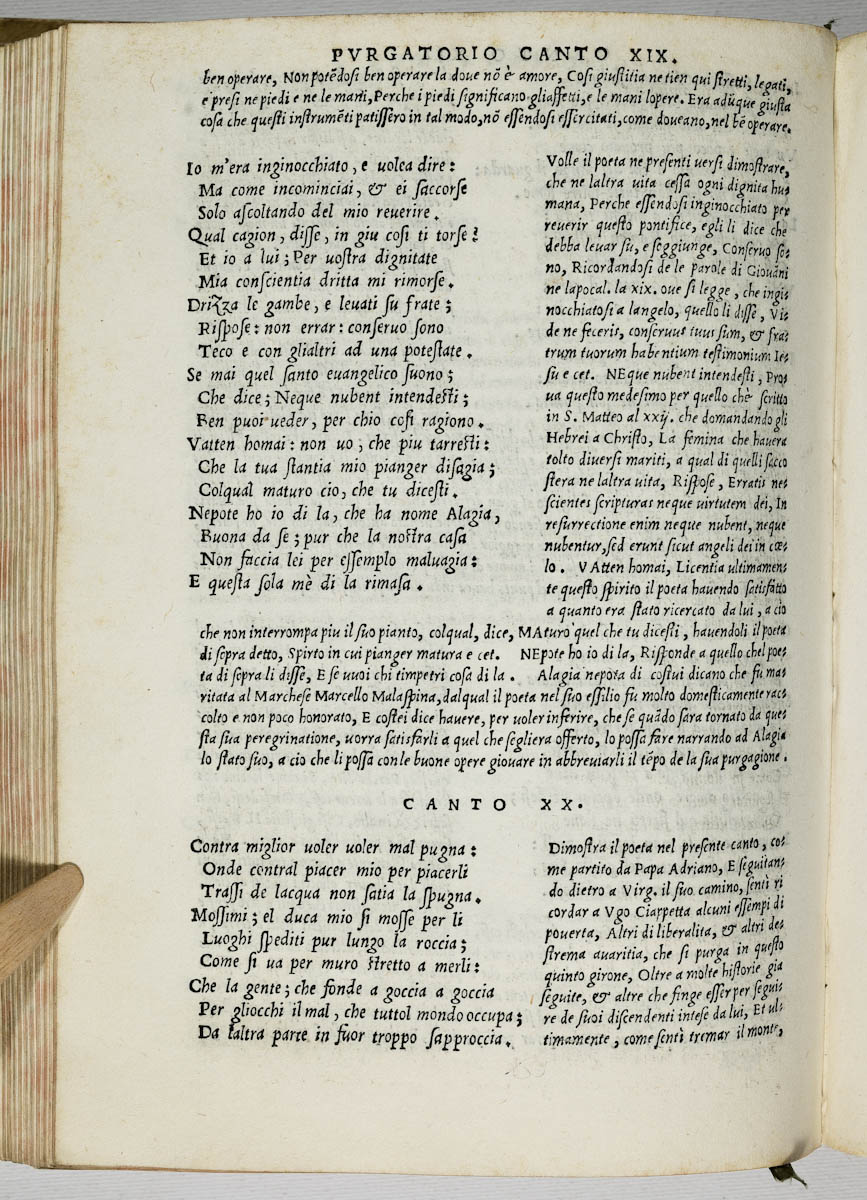 PVRGATORIO CANTO XIX.
ben operare, Non potēdosi ben operare la doue nō è amore, Cosi giustitia ne tien qui stretti, legati,
e presi ne piedi e ne le mani, Perche i piedi significano gliaffetti, e le mani lopere. Era adūque giusta
cosa che questi instrumēti patissero in tal modo, nō essendosi essercitati, come doueano, nel bē operare.
Io m'era inginocchiato, e uolea dire:
Ma come incominciai, & ei saccorse
Solo ascoltando del mio reuerire.
Qual cagion, disse, in giu cosi ti torse?
Et io a lui; Per uostra dignitate
Mia conscientia dritta mi rimorse.
Drizza le gambe, e leuati su frate;
Rispose: non errar: conseruo sono
Teco e con glialtri ad una potestate.
Se mai quel santo euangelico suono;
Che dice; Neque nubent intendesti;
Ben puoi ueder, per chio cosi ragiono.
Vatten homai: non uo, che piu tarresti:
Che la tua stantia mio pianger disagia;
Colqual maturo cio, che tu dicesti.
Nepote ho io di la, che ha nome Alagia,
Buona da se; pur che la nostra casa
Non faccia lei per essemplo maluagia:
E questa sola mè di la rimasa.
Volle il poeta ne presenti uersi dimostrare,
che ne laltra uita cessa ogni dignita hu=
mana, Perche essendosi inginocchiato per
reuerir questo pontifice, egli li dice che
debba leuar su, e seggiunge, Conseruo so=
no, Ricordandosi de le parole di Giouāni
ne lapocal. la xix. oue si legge, che ingi=
nocchiatosi a langelo, quello li disse, Vi=
de ne feceris, conseruus tuus sum, & fra=
trum tuorum habentium testimonium Ie=
su e cet. NEque nubent intendesti, Pro=
ua questo medesimo per quello chè scritto
in S. Matteo al xxij. che domandando gli
Hebrei a Christo, La femina che hauera
tolto diuersi mariti, a qual di quelli sacco
stera ne laltra uita, Rispose, Erratis ne=
scientes scripturas neque uirtutem dei, In
resurrectione enim neque nubent, neque
nubentur, sed erunt sicut angeli dei in cœ=
lo. VAtten homai, Licentia ultimamen=
te questo spirito il poeta hauendo satisfatto
a quanto era stato ricercato da lui, a cio
che non interrompa piu il suo pianto, colqual, dice, MAturo quel che tu dicesti, hauendoli il poeta
di sopra detto, Spirto in cui pianger matura e cet. NEpote ho io di la, Risponde a quello chel poe=
ta di sopra li disse, E se uuoi chi timpetri cosa di la. Alagia nepota di costui dicano che fu ma=
ritata al Marchese Marcello Malaspina, dalqual il poeta nel suo essilio fu molto domesticamente rac=
colto e non poco honorato, E costei dice hauere, per uoler inferire, che se quādo sara tornato da que=
sta sua peregrinatione, uorra satisfarli a quel che segliera offerto, lo possa fare narrando ad Alagia
lo stato suo, a cio che li possa con le buone opere giouare in abbreuiarli il tēpo de la sua purgagione.
CANTO XX.
Contra miglior uoler uoler mal pugna:
Onde contral piacer mio per piacerli
Trassi de lacqua non satia la spugna.
Mossimi; el duca mio si mosse per li
Luoghi spediti pur lungo la roccia;
Come si ua per muro stretto a merli:
Che la gente; che fonde a goccia a goccia
Per gliocchi il mal, che tuttol mondo occupa;
Da laltra parte in fuor troppo sapproccia.
Dimostra il poeta nel presente canto, co=
me partito da Papa Adriano, E seguitan=
do dietro a Virg. il suo camino, sentì ri
cordar a Vgo Ciappetta alcuni essempi di
pouerta, Altri di liberalita, & altri de=
strema auaritia, che si purga in questo
quinto girone, Oltre a molte historie gia
seguite, & altre che finge esser per segui=
re de suoi discendenti intese da lui, Et ul=
timamente, come sentì tremar il monte,